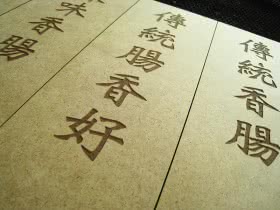 傳統香腸
傳統腸香好
味香腸